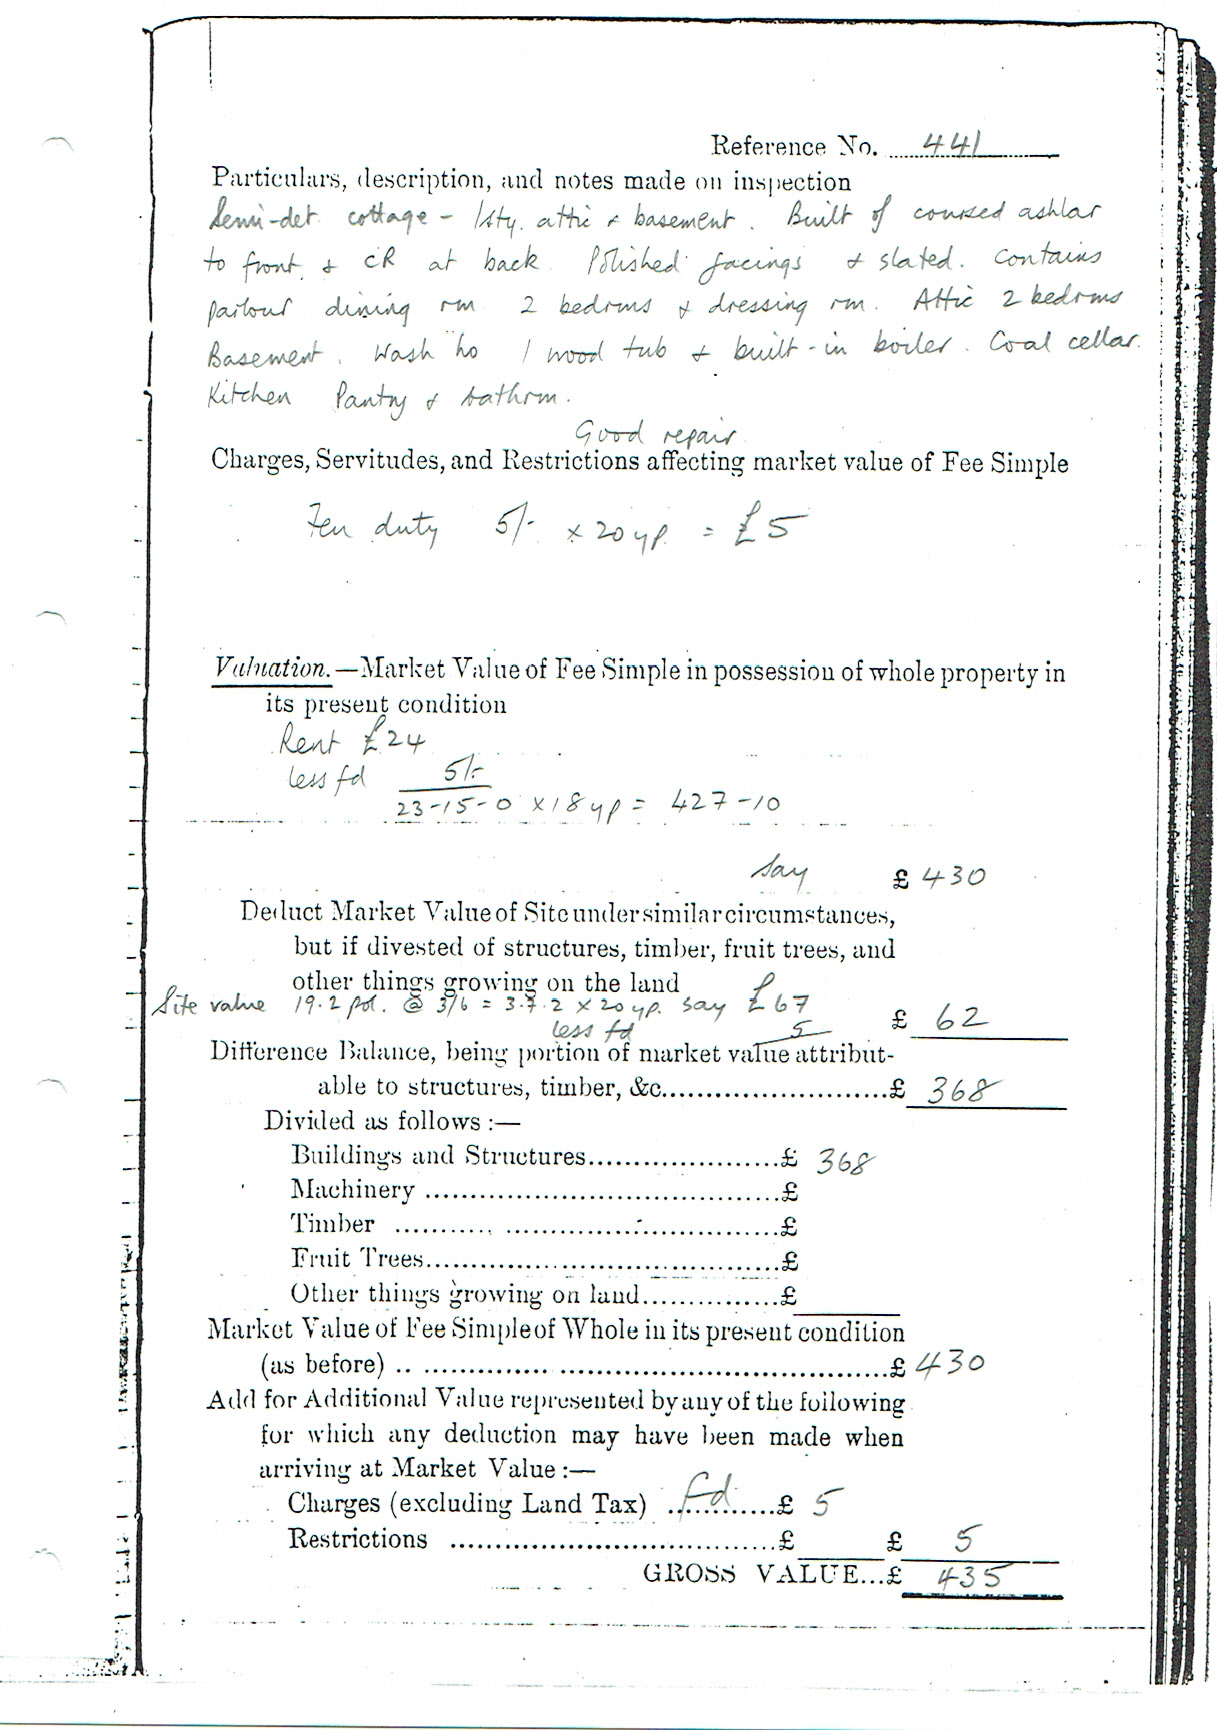 Reference No. 441
Particulars, description, and notes made on inspection
Semi-det. cottage - 1sty. attic & basement. Built of coursed ashlar
to front & CR at back. Polished facings & slated. Contains
parlour dining rm 2 bedrms & dressing rm. Attic 2 bedrms
Basement. Wash ho 1 wood tub & built-in boiler. Coal cellar.
Kitchen Pantry & bathrm.
Good repair
Charges, Servitudes, and Restrictions affecting market value of Fee Simple
Feu duty 5/- x 20 yp. = £5
Valuation.—Market Value of Fee Simple in possession of whole property in
its present condition
Rent £24
less fd 5/-
23-15-0 x 18 yp = 427-10
say £ 430
Deduct Market Value of Site under similar circumstances,
but if divested of structures, timber, fruit trees, and
other things growing on the land
Site value 19.2 pol. @ 3/6 = 3.7.2 x 20 yp. say £67
less fd 5 £ 62
Difference Balance, being portion of market value attribut-
able to structures, timber, &c. £ 368
Divided as follows :—
Buildings and Structures £ 368
Machinery £
Timber £
Fruit Trees £
Other things growing on land £
Market Value of Fee Simple of Whole in its present condition
(as before) £ 430
Add for Additional Value represented by any of the following
for which any deduction may have been made when
arriving at Market Value :—
Charges (excluding Land Tax) fd £ 5
Restrictions £ £ 5
GROSS VALUE...£ 435